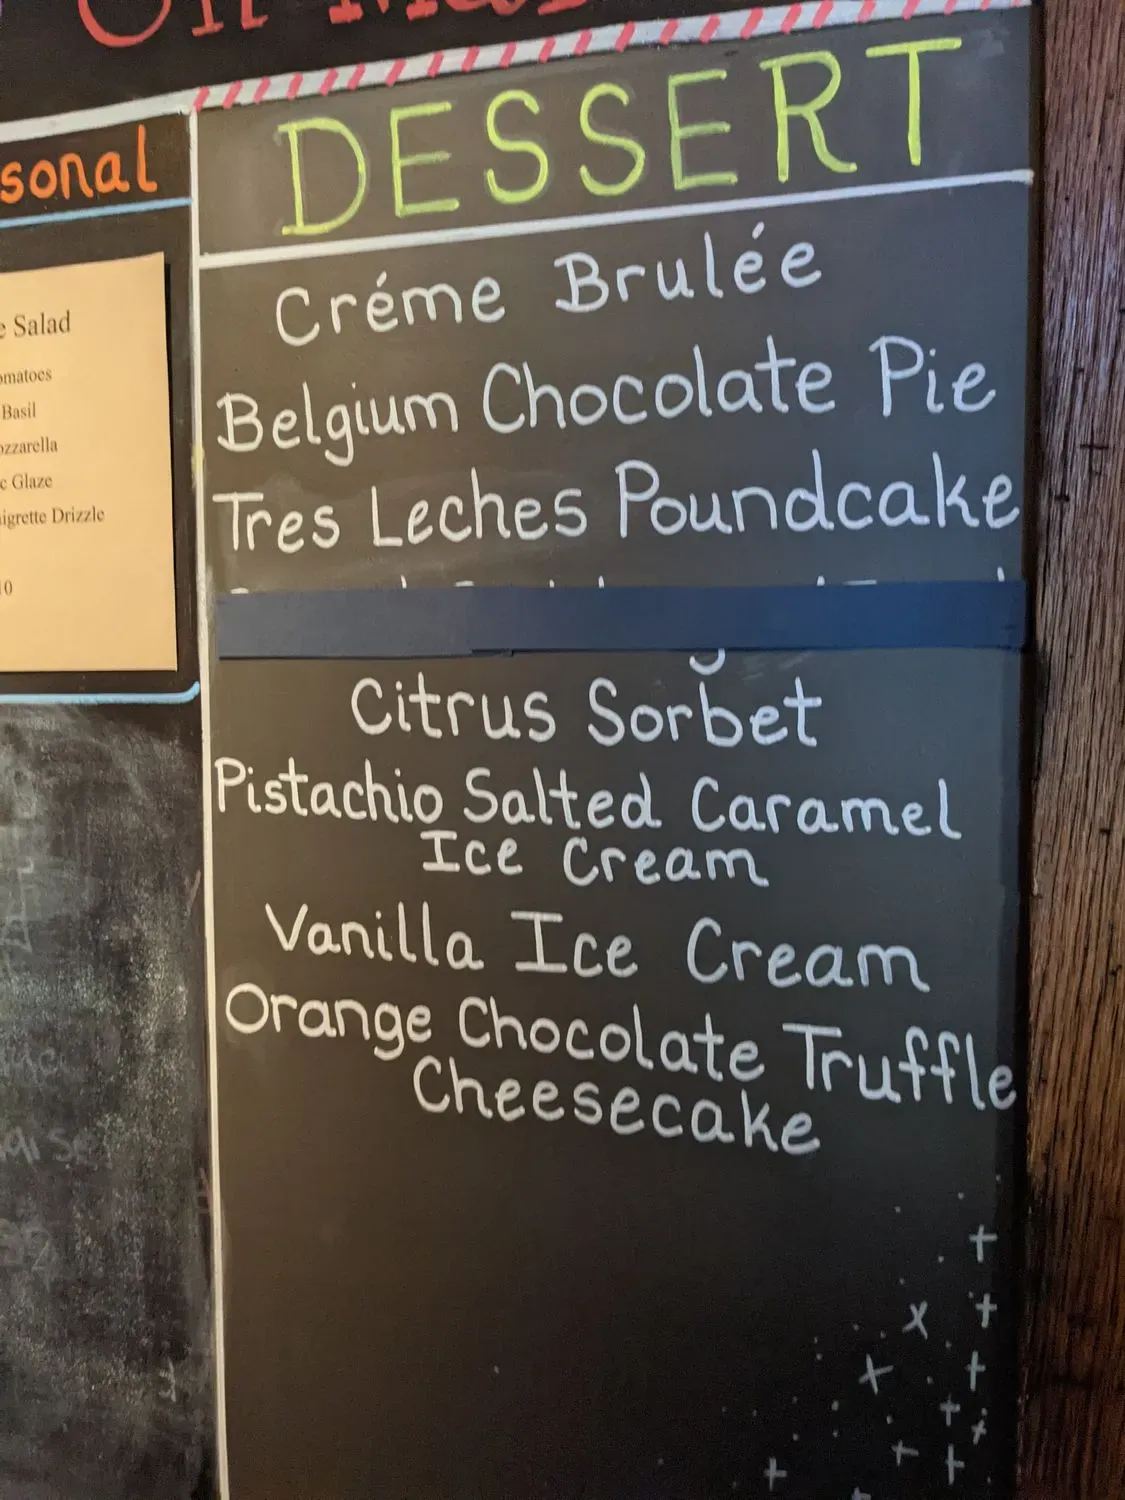 DESSERT
sonal
Créme Brulée
Belgium Chocolate Pie
Tres Leches Poundcake
Citrus Sorbet
Pistachio Salted Caramel
Ice Cream
Vanilla Ice Cream
Orange Chocolate Truffle
Cheesecake
e Salad
omatoes
Basil
ozzarella
c Glaze
igrette Drizzle
10